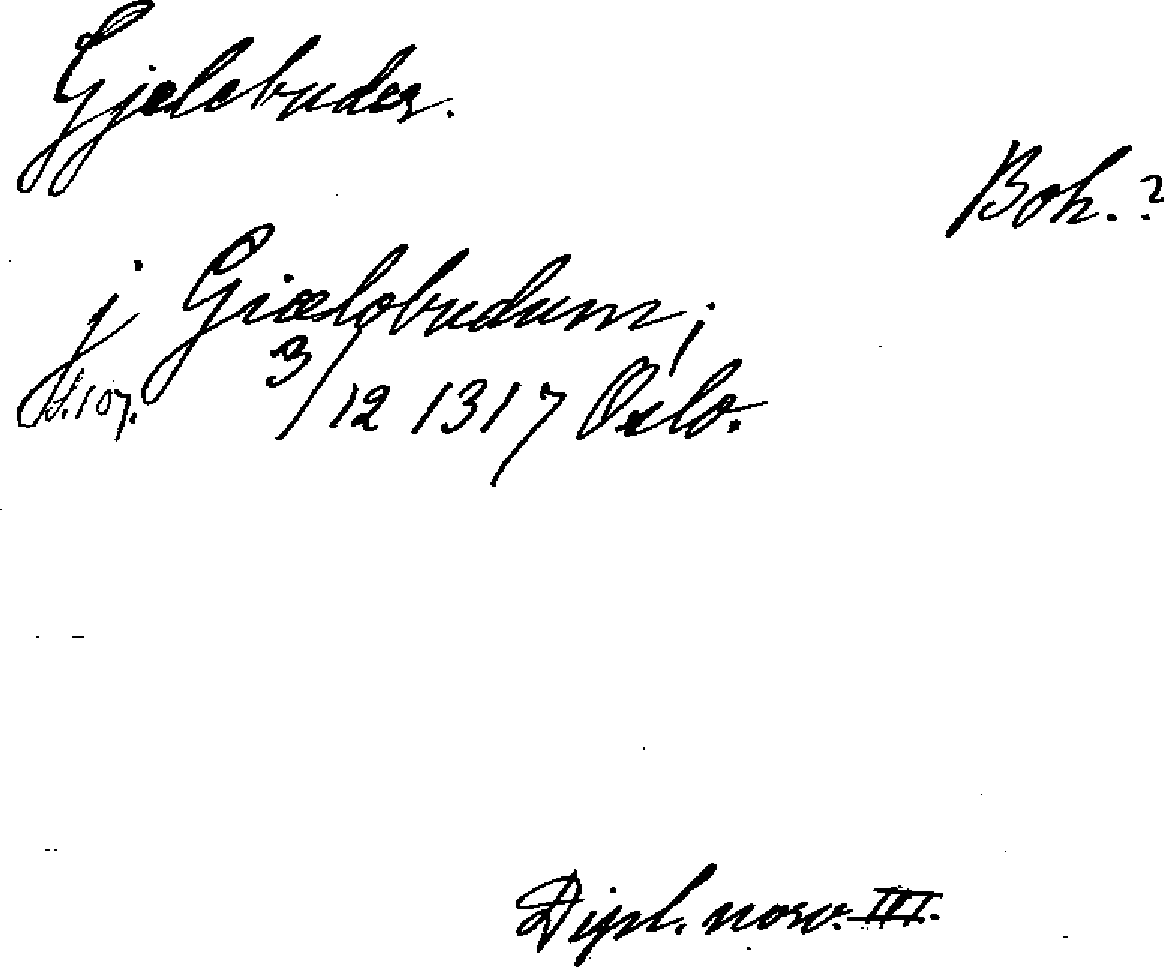 Gjelebuder.
Boh.?
j Giælobudum;
S.107. 3/12 1317 Oslo.
Dipl. norv. III.